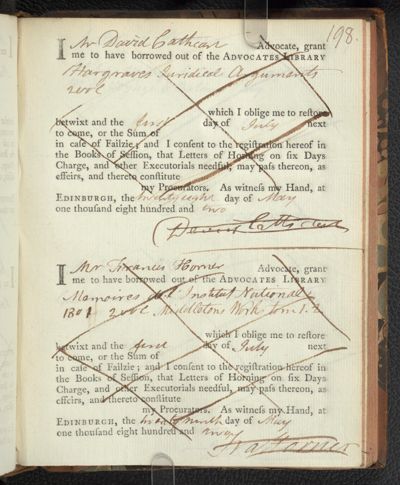 198.
I Mr David Cathcart Advocate, grant
me to have borrowed out of the ADVOCATES LIBRARY
Hargraves Juridical Arguments
2 vols
which I oblige me to restore
betwixt and the first day of July next
to come, or the Sum of
in case of Failzie; and I consent to the registration hereof in
the Books of Session, that Letters of Horning on six Days
Charge, and other Executorials needful, may pass thereon, as
effeirs, and thereto constitute
my Procurators. As witness my Hand, at
EDINBURGH, the twentyeight day of May
one thousand eight hundred and two
David Cathcart
I Mr Francis Horner Advocate, grant
me to have borrowed out of the ADVOCATES LIBRARY
Memoires de l'Institut Nationale
1801 2 vols Middletons Works tom 1.
which I oblige me to restore
betwixt and the first day of July next
to come, or the Sum of
in case of Failzie; and I consent to the registration hereof in
the Books of Session, that Letters of Horning on six Days
Charge, and other Executorials needful, may pass thereon, as
effeirs, and thereto constitute
my Procurators. As witness my Hand, at
EDINBURGH, the twenty ninth day of May
one thousand eight hundred and two
Fra Horner